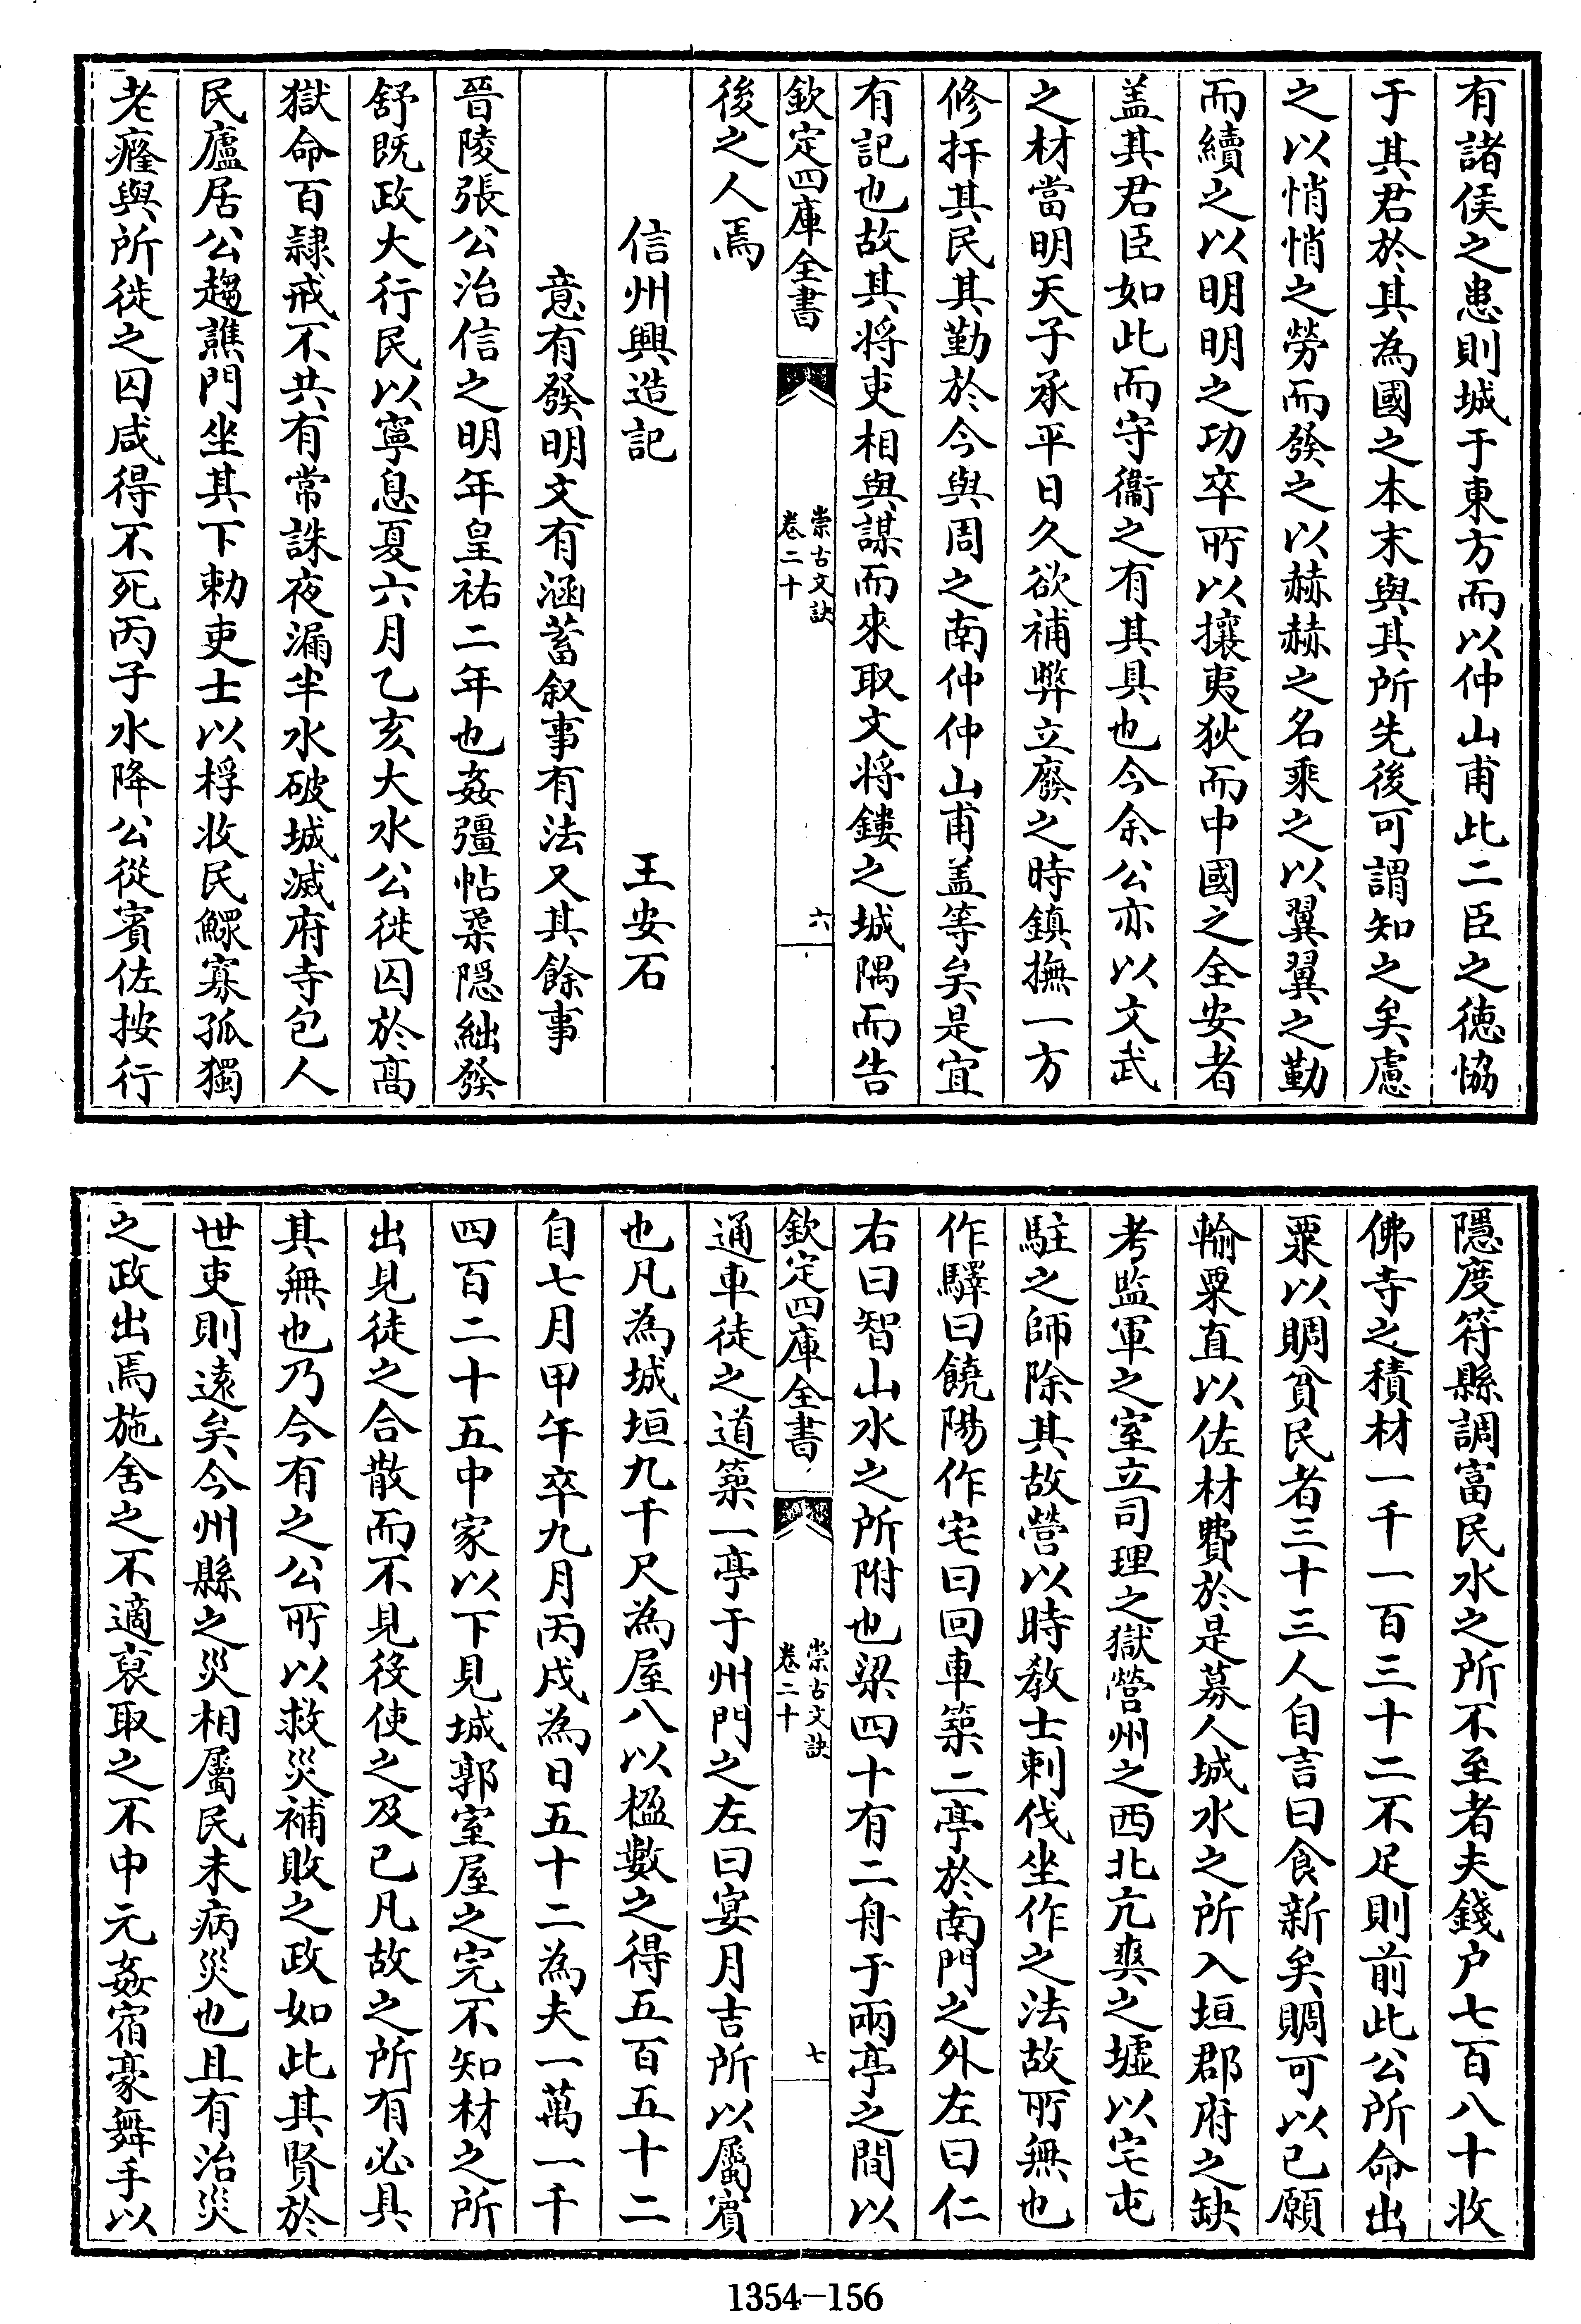 有諸侯之患則城于東方而以仲山甫此二臣之徳恊
于其君於其為國之本末與其所先後可謂知之矣慮
之以悄悄之勞而發之以赫赫之名乘之以翼翼之勤
而續之以明明之功卒所以攘夷狄而中國之全安者
盖其君臣如此而守衞之有其具也今余公亦以文武
之材當明天子承平日久欲補弊立廢之時鎮撫一方
修扞其民其勤於今與周之南仲仲山甫盖等矣是宜
有記也故其将吏相與謀而來取文将鏤之城隅而告
欽定四庫全書
崇古文訣
卷二十
六
後之人焉
信州興造記
王安石
意有發明文有涵蓄叙事有法又其餘事
晉陵張公治信之明年皇祐二年也姦彊帖柔隠絀發
舒既政大行民以寧息夏六月乙亥大水公徙囚於髙
獄命百隷戒不共有常誅夜漏半水破城滅府寺包人
民廬居公趨譙門坐其下勅吏士以桴收民鰥寡孤獨
老癃與所徙之囚咸得不死丙子水降公從賓佐按行
隱度符縣調富民水之所不至者夫錢户七百八十收
佛寺之積材一千一百三十二不足則前此公所命出
粟以賙貧民者三十三人自言曰食新矣賙可以已願
輸粟直以佐材費於是募人城水之所入垣郡府之缺
考監軍之室立司理之獄營州之西北亢爽之墟以宅屯
駐之師除其故營以時教士刺伐坐作之法故所無也
作驛曰饒陽作宅曰回車築二亭於南門之外左曰仁
右曰智山水之所附也梁四十有二舟于兩亭之間以
欽定四庫全書
崇古文訣
卷二十
七
通車徒之道築一亭于州門之左曰宴月吉所以屬賓
也凡為城垣九千尺為屋八以楹數之得五百五十二
自七月甲午卒九月丙戍為日五十二為夫一萬一千
四百二十五中家以下見城郭室屋之完不知材之所
出見徒之合散而不見役使之及己凡故之所有必具
其無也乃今有之公所以救災補敗之政如此其賢於
世吏則遠矣今州縣之災相屬民未病災也且有治災
之政出焉施舍之不適裒取之不中元姦宿豪舞手以
1354—156